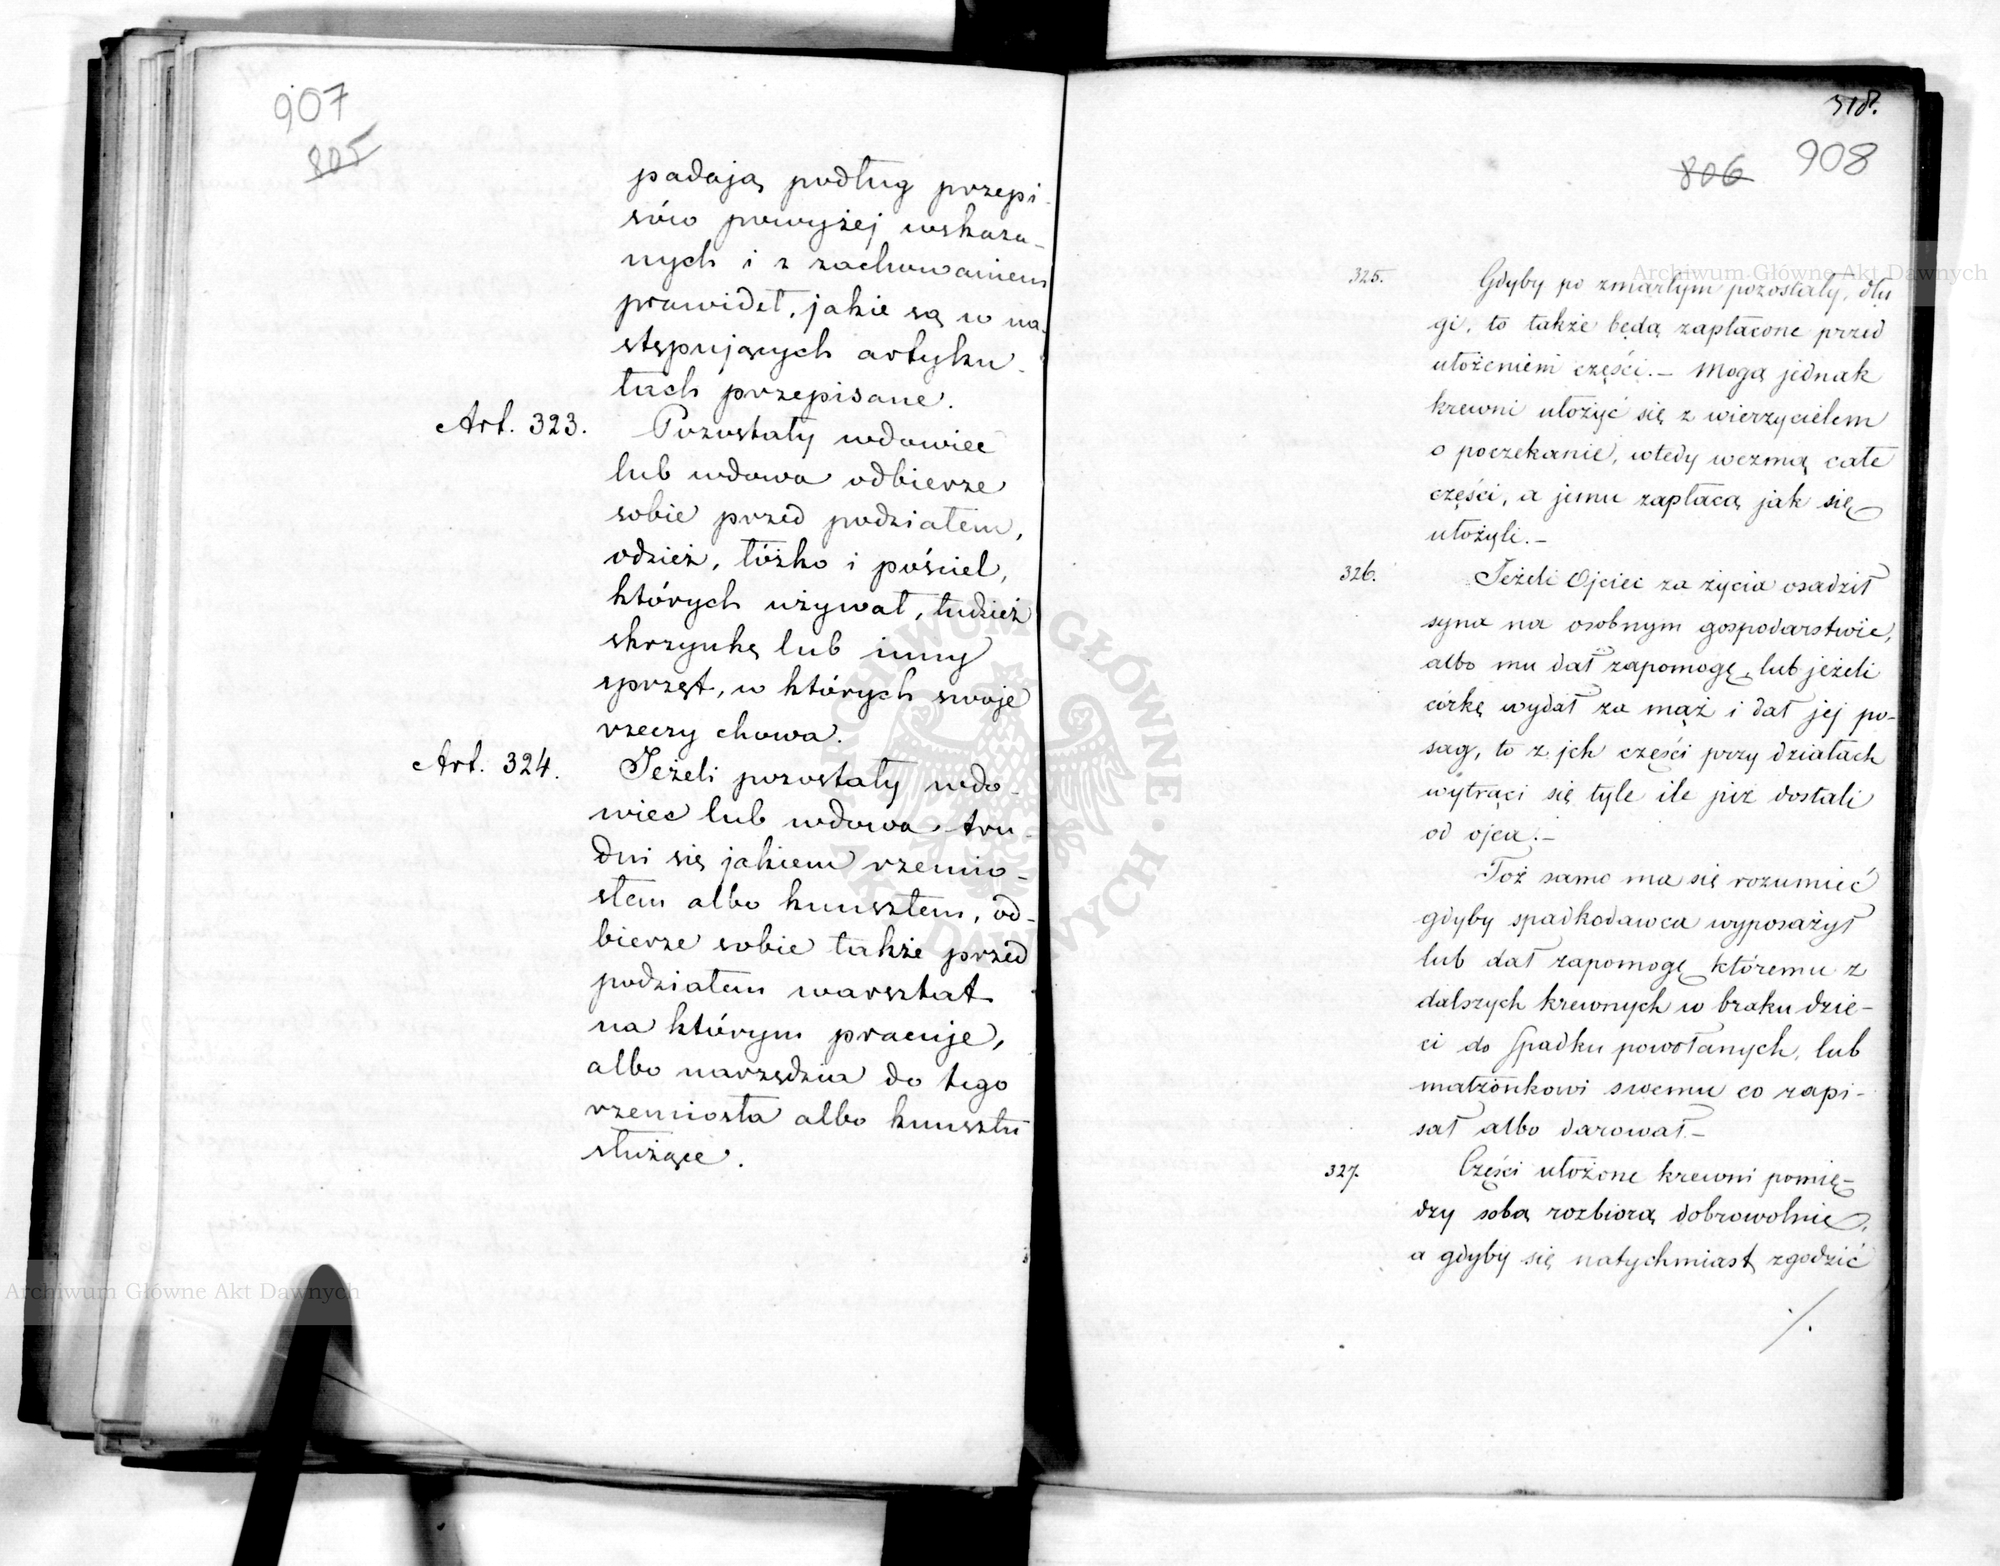 907
805
padają podług przepi-
sów powyżej wskaza-
nych i z zachowaniem
prawideł, jakie są w na-
stępujących artyku-
łach przepisane.
Art. 323. Pozostały wdowiec
lub wdowa odbierze
sobie przed podziałem,
odzież, łóżko i pościel,
których używał, tudzież
skrzynkę lub inny
sprzęt, w których swoje
rzeczy chowa.
Art. 324. Jeżeli pozostały wdo-
wiec lub wdowa tru-
dni się jakiem rzemio-
słem albo kunsztem, od-
bierze sobie także przed
podziałem warsztat
na którym pracuje,
albo narzędzia do tego
rzemiosła albo kunsztu
służące.
518.
806 908
325. Gdyby po zmarłym pozostały dłu
gi, to także będą zapłacone przed
ułożeniem części.— Mogą jednak
krewni ułożyć się z wierzycielem
o poczekanie, wtedy wezmą całe
części, a jemu zapłacą jak się
ułożyli.—
326. Jeżeli Ojciec za życia osadził
syna na osobnym gospodarstwie,
albo mu dał zapomogę, lub jeżeli
córkę wydał za mąż i dał jej po-
sag, to z jch części przy działach
wytrąci się tyle ile już dostali
od ojca.—
Toż samo ma się rozumieć
gdyby spadkodawca wyposażył
lub dał zapomogę któremu z
dalszych krewnych w braku dzie-
ci do spadku powołanych, lub
małżonkowi swemu co zapi-
sał albo darował.—
327. Części ułożone krewni pomię-
dzy sobą rozbiorą dobrowolnie,
a gdyby się natychmiast zgodzić
./.
Archiwum Główne Akt Dawnych
Archiwum Główne Akt Dawnych
ARCHIWUM GŁÓWNE AKT DAWNYCH